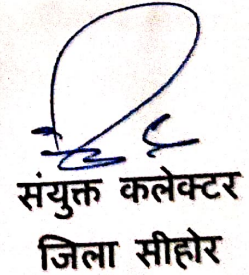 संयुक्त कलेक्टर
जिला सीहोर